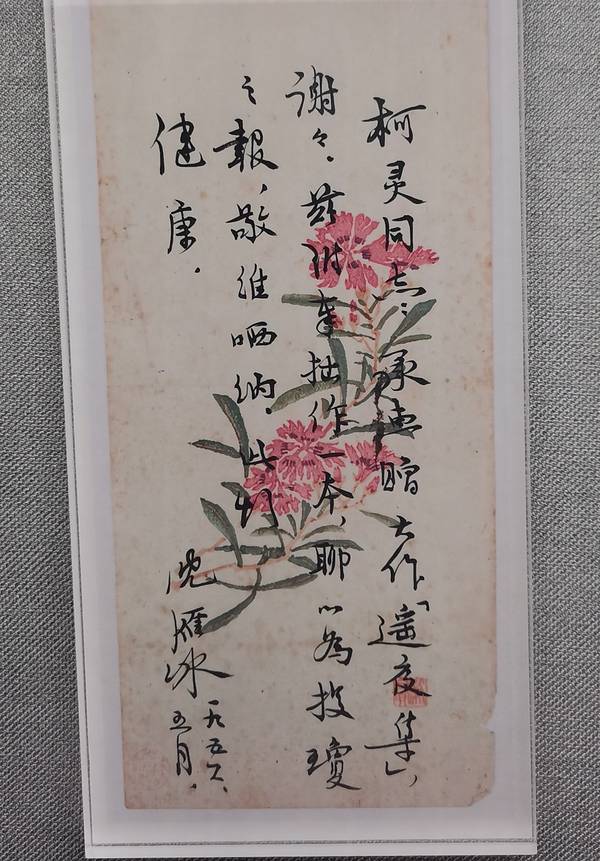 柯灵同志：承惠赠大作「遥夜集」，
谢々。兹附奉拙作一本，聊以為投瓊
之報，敬维哂纳。此颂
健康。
沈雁冰
一九五六、
五月。